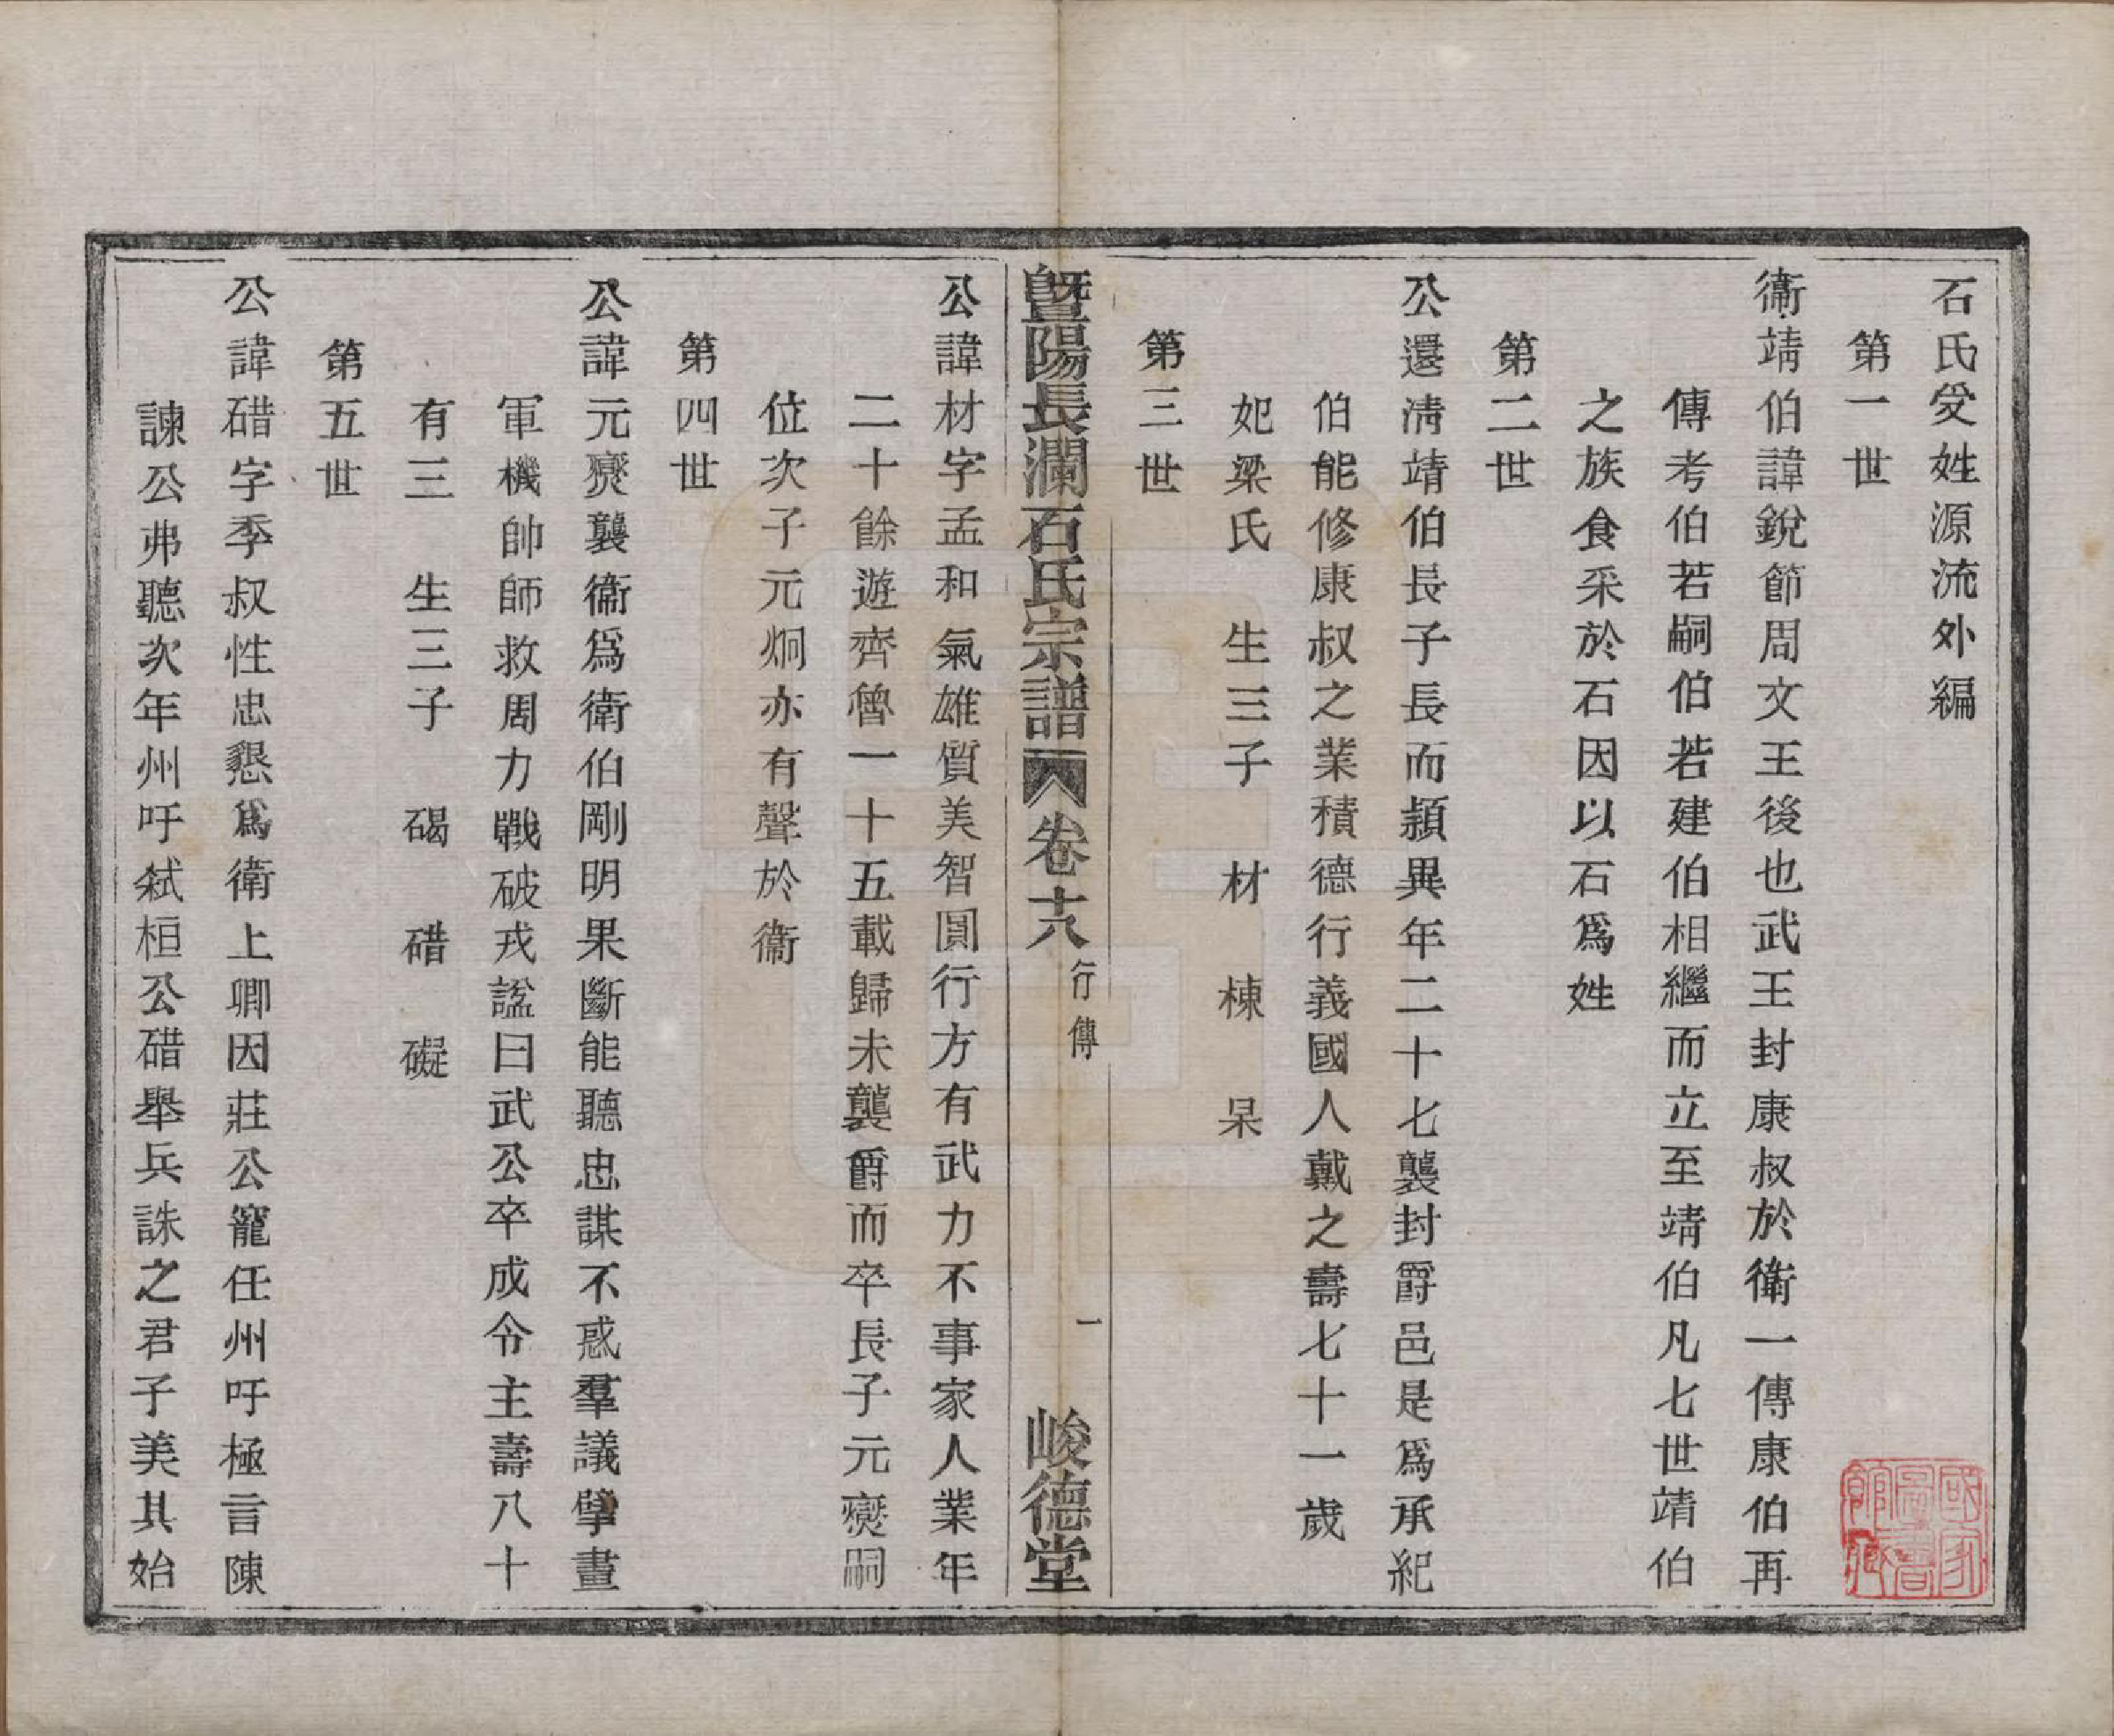 石氏受姓源流外編
第一世
衞靖伯諱銳節周文王後也武王封康叔於衛一傳康伯再
傳考伯若嗣伯若建伯相繼而立至靖伯凡七世靖伯
之族食采於石因以石爲姓
第二世
公還淸靖伯長子長而頴異年二十七襲封爵邑是爲承紀
伯能修康叔之業積德行義國人戴之壽七十一歲
妃梁氏 生三子 材 棟 杲
第三世
曁陽長瀾石氏宗譜 卷十八 行傳 一 峻德堂
公諱材字孟和氣雄質美智圓行方有武力不事家人業年
二十餘遊齊魯一十五載歸未襲爵而卒長子元燮嗣
位次子元炯亦有聲於衞
第四世
公諱元燮襲衞爲衛伯剛明果斷能聽忠謀不惑羣議擘畫
軍機帥師救周力戰破戎諡曰武公卒成令主壽八十
有三 生三子 碣 碏 礙
第五世
公諱碏字季叔性忠懇爲衛上卿因莊公寵任州吁極言陳
諫公弗聽次年州吁弑桓公碏舉兵誅之君子美其始
國家圖書館藏